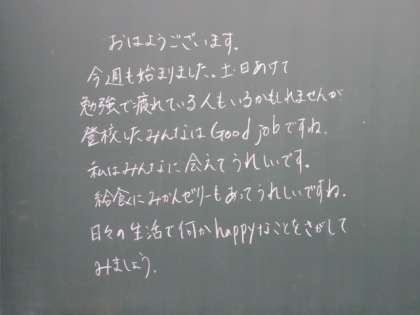 おはようございます。
今週も始まりました。土・日あけて
勉強で疲れている人もいるかもしれませんが
登校したみんなはGood jobですね。
私はみんなに会えてうれしいです。
給食にみかんゼリーもあってうれしいですね。
日々の生活で何かhappyなことをさがして
みましょう。